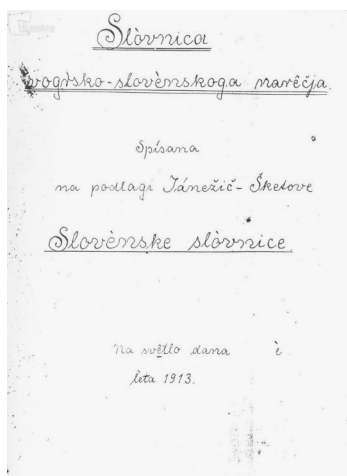 Slòvnica
vogŕsko-slovènskoga narêčja.
Spísana
na podlagi Jánežič-Šketove
Slovènske slòvnice.
Na svêtlo dana i
leta 1913.